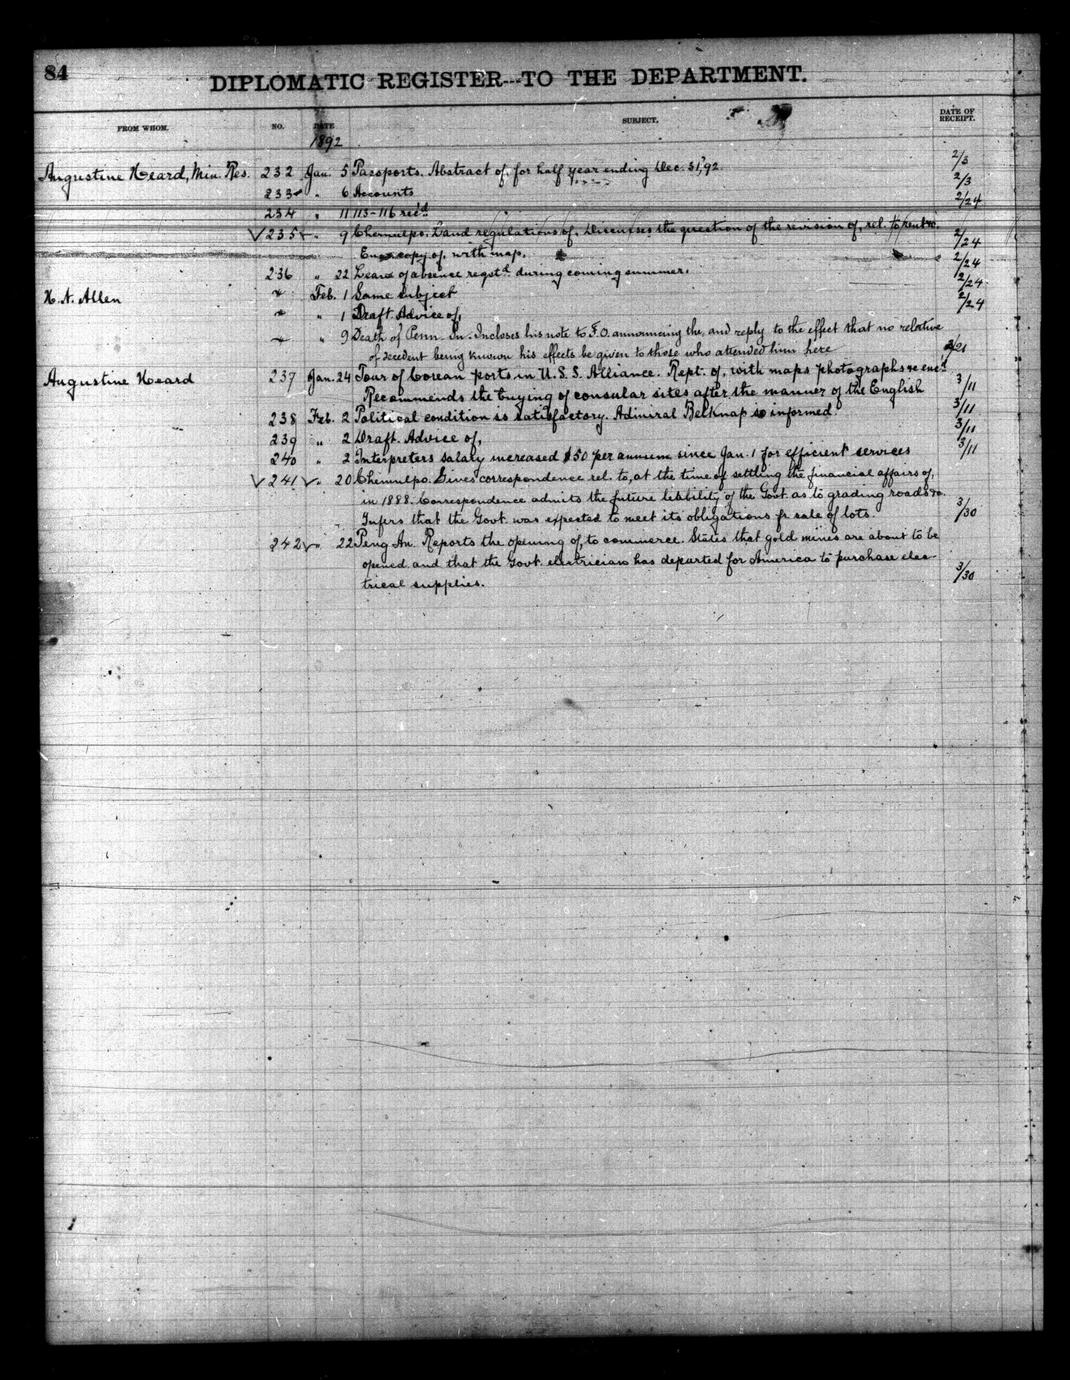 84
DIPLOMATIC REGISTER---TO THE DEPARTMENT.
FROM WHOM. NO. DATE SUBJECT. DATE OF RECEIPT.
1892
Augustine Heard, Min. Res. 232 Jan. 5 Passports. Abstract of, for half year ending Dec. 31,'92. 2/3
233 " 6 Accounts 2/3
234 " 11 113-116 rec'd 2/24
√ 235 " 9 Chemulpo. Land regulations of. Discusses the question of the revision of, rel. to rent &c.
Enc. copy of, with map. 2/24
236 " 22 Leave of absence reqst'd during coming summer. 2/24
H. N. Allen " Feb. 1 Same subject 2/24
" " 1 Draft. Advice of, 2/24
" " 9 Death of Penn. In. Incloses his note to F.O. announcing the, and reply to the effect that no relative
of decedent being known his effects be given to those who attended him here 3/21
Augustine Heard 237 Jan. 24 Tour of Corean ports in U.S.S. Alliance. Rept. of, with maps photographs &c enc'd
Recommends the buying of consular sites after the manner of the English 3/11
238 Feb. 2 Political condition is satisfactory. Admiral Belknap so informed. 3/11
239 " 2 Draft. Advice of, 3/11
240 " 2 Interpreters salary increased $50 per annum since Jan. 1 for efficient services 3/11
√ 241 √ " 20 Chemulpo. Gives correspondence rel. to, at the time of settling the financial affairs of,
in 1888. Correspondence admits the future liability of the Govt. as to grading roads &c.
Infers that the Govt. was expected to meet its obligations fr sale of lots. 3/30
242 √ " 22 Peng An. Reports the opening of, to commerce. States that gold mines are about to be
opened and that the Govt. electrician has departed for America to purchase elec-
trical supplies. 3/30